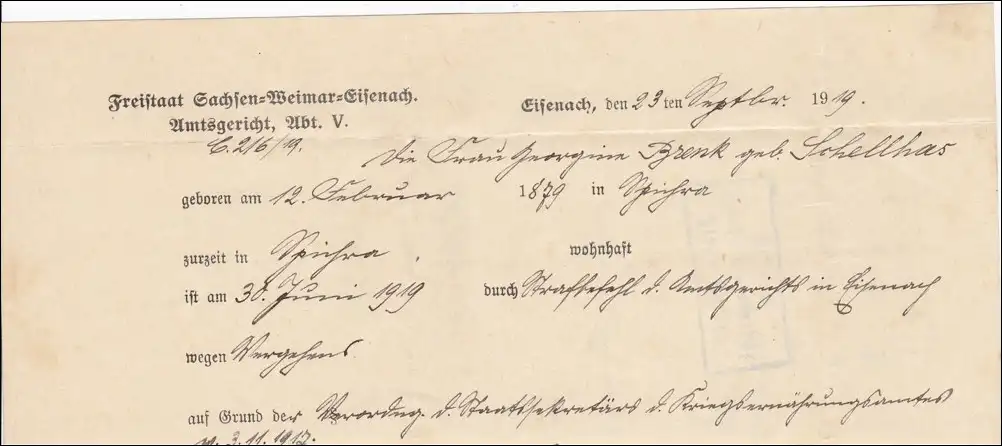 Freistaat Sachsen-Weimar-Eisenach.
Amtsgericht, Abt. V.
Eisenach, den 23 ten Septbr. 1919.
C. 216/19.
Die Frau Georgine Brenk geb. Schellhas
geboren am 12. Februar 1879 in Spichra
zurzeit in Spichra, wohnhaft
ist am 30. Juni 1919 durch Strafbefehl d. Amtsgerichts in Eisenach
wegen Vergehens
auf Grund der Verordng. d. Staatssekretärs d. Kriegsernährungsamtes
v. 3.11.1917.